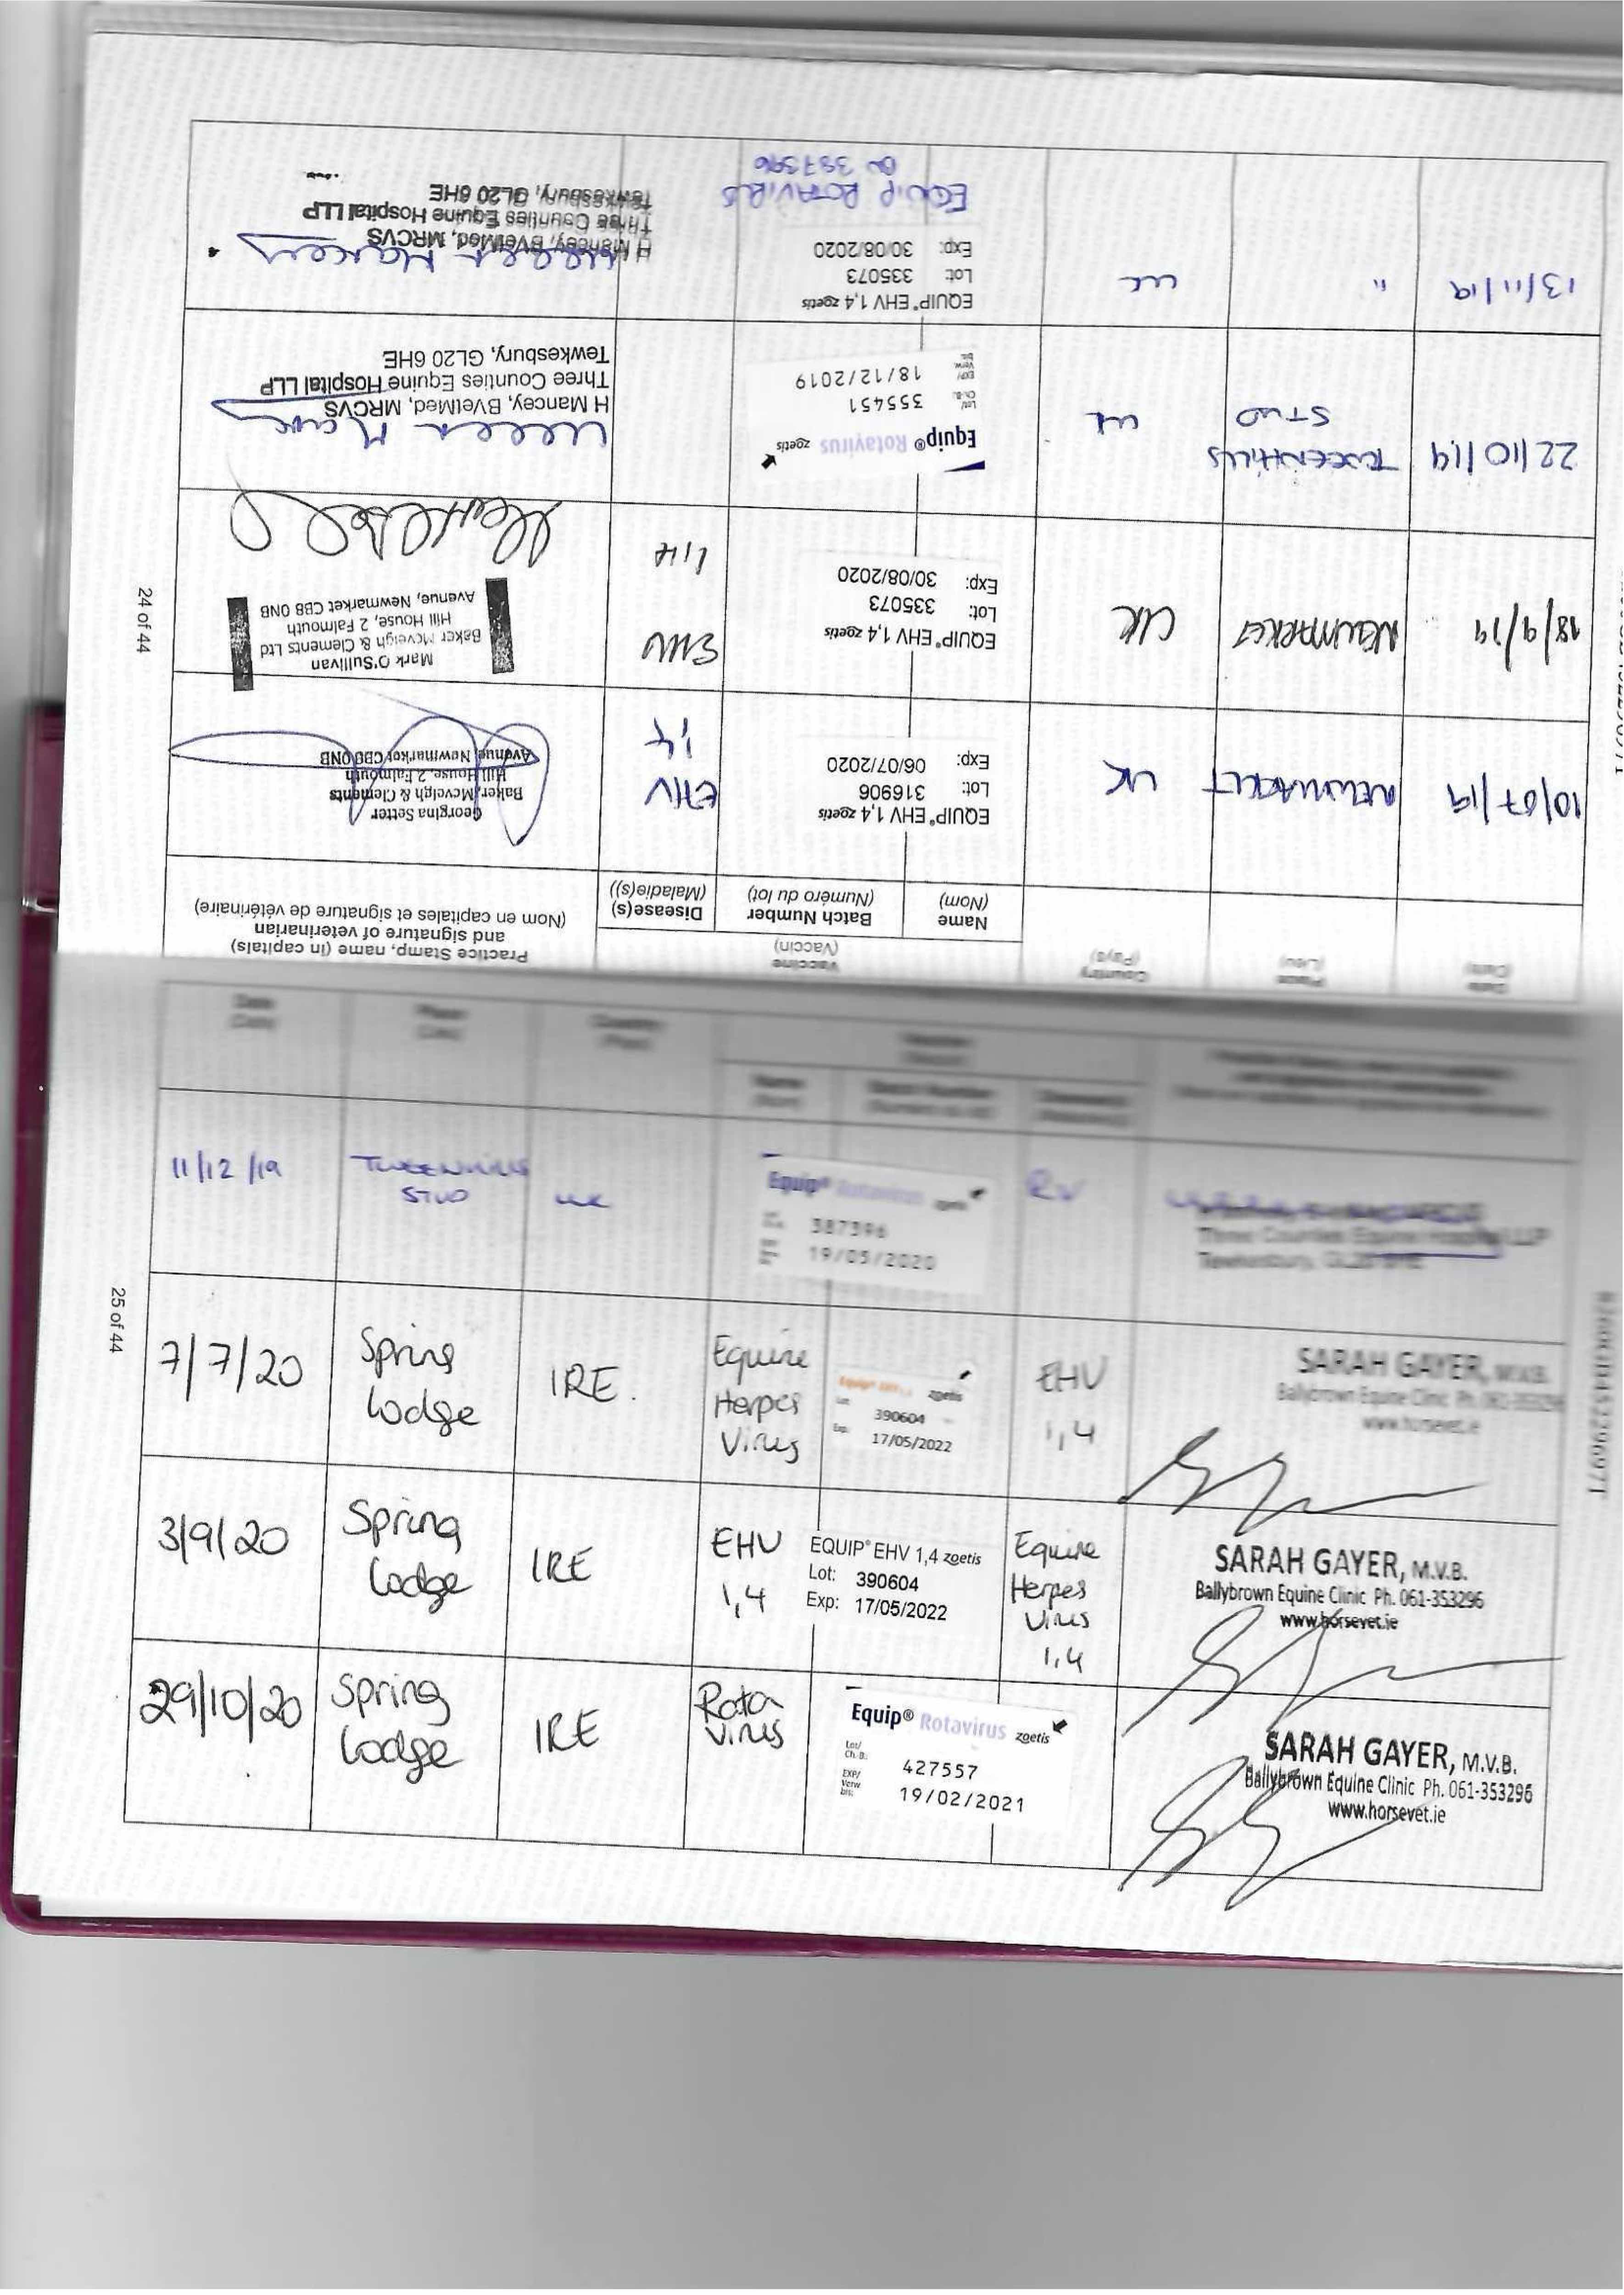 24 of 44
Date
(Date)
Place
(Lieu)
Country
(Pays)
Vaccine
(Vaccin)
Name
(Nom)
Batch Number
(Numéro du lot)
Disease(s)
(Maladie(s))
Practice Stamp, name (in capitals)
and signature of veterinarian
(Nom en capitales et signature de vétérinaire)
10/07/19
NEWMARKET
UK
EQUIP® EHV 1,4 zoetis
Lot: 316906
Exp: 06/07/2020
EHV
1,4
Georgina Setter
Baker, Mcveigh & Clements
Hill House, 2 Falmouth
Avenue, Newmarket CB8 0NB
18/9/19
NEWMARKET
UK
EQUIP® EHV 1,4 zoetis
Lot: 335073
Exp: 30/08/2020
EHV
1,4
Mark O'Sullivan
Baker Mcveigh & Clements Ltd
Hill House, 2 Falmouth
Avenue, Newmarket CB8 0NB
22/10/19
TWEENHILLS
STUD
UK
Equip® Rotavirus zoetis
Lot/
Ch.-B.: 355451
EXP/
Verw.
bis: 18/12/2019
H Mancey, BVetMed, MRCVS
Three Counties Equine Hospital LLP
Tewkesbury, GL20 6HE
13/11/19
"
UK
EQUIP® EHV 1,4 zoetis
Lot: 335073
Exp: 30/08/2020
EQUIP ROTAVIRUS
387396
H Mancey, BVetMed, MRCVS
Three Counties Equine Hospital LLP
Tewkesbury, GL20 6HE
25 of 44
Date
(Date)
Place
(Lieu)
Country
(Pays)
Vaccine
(Vaccin)
Name
(Nom)
Batch Number
(Numéro du lot)
Disease(s)
(Maladie(s))
11/12/19
TWEENHILLS
STUD
UK
Equip® Rotavirus zoetis
387396
19/05/2020
RV
Three Counties Equine Hospital LLP
Tewkesbury, GL20 6HE
7/7/20
Spring
Lodge
IRE.
Equine
Herpes
Virus
zoetis
390604
Exp: 17/05/2022
EHV
1,4
SARAH GAYER, M.V.B.
Ballybrown Equine Clinic Ph. 061-353296
www.horsevet.ie
3/9/20
Spring
Lodge
IRE
EHV
1,4
EQUIP® EHV 1,4 zoetis
Lot: 390604
Exp: 17/05/2022
Equine
Herpes
Virus
1,4
SARAH GAYER, M.V.B.
Ballybrown Equine Clinic Ph. 061-353296
www.horsevet.ie
29/10/20
Spring
Lodge
IRE
Rota
virus
Equip® Rotavirus zoetis
Lot/
Ch.-B.: 427557
EXP/
Verw
bis: 19/02/2021
SARAH GAYER, M.V.B.
Ballybrown Equine Clinic Ph. 061-353296
www.horsevet.ie